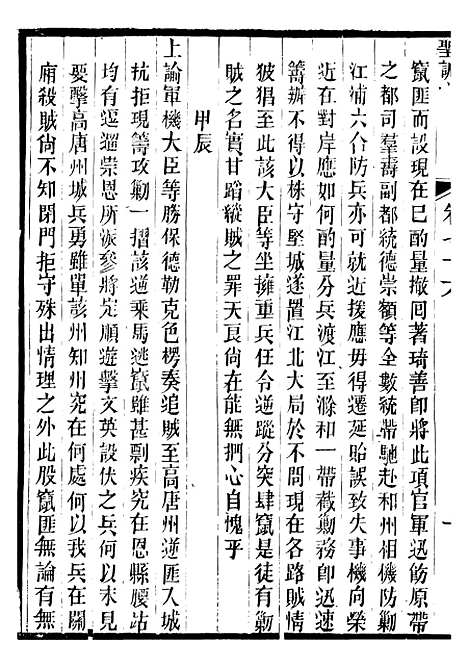 聖訓
卷七十八
竄匪而設現在已酌量撤囘著琦善卽將此項官軍迅飭原帶
之都司羣壽副都統德崇額等全數統帶馳赴和州相機防勦
江浦六合防兵亦可就近援應毋得遷延貽誤致失事機向榮
近在對岸應如何酌量分兵渡江至滁和一帶截勦務卽迅速
籌辦不得以株守堅城遂置江北大局於不問現在各路賊情
披猖至此該大臣等坐擁重兵任令逆蹤分突肆竄是徒有勦
賊之名實甘蹈縱賊之罪天良尚在能無捫心自愧乎
甲辰
上諭軍機大臣等勝保德勒克色楞奏追賊至高唐州逆匪入城
抗拒現籌攻勦一摺該逆乘馬逃竄雖甚剽疾究在恩縣腰站
均有逗遛崇恩所派參將定順遊擊文英設伏之兵何以未見
要擊高唐州城兵勇雖單該州知州究在何處何以我兵在關
廂殺賊尚不知閉門拒守殊出情理之外此股竄匪無論有無